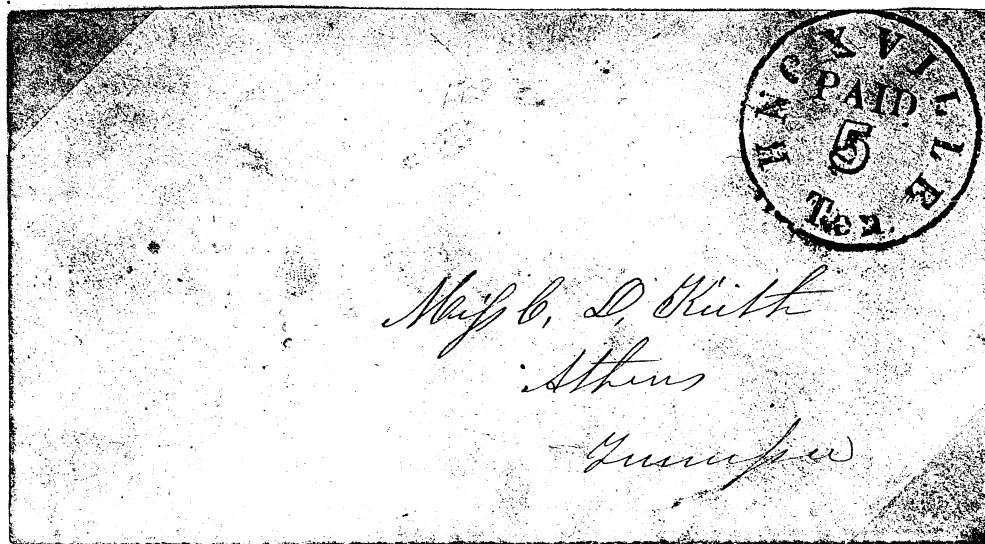 KNOXVILLE
PAID
5
Ten.
Miss C. D. Keith
Athens
Tennessee